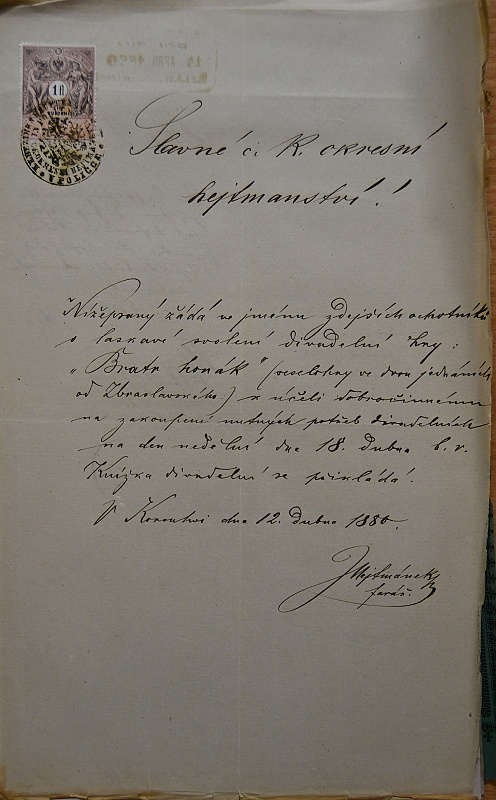 1 fl
V POLIČCE
Slavné c. k. okresní
hejtmanství!
Nížepsaný žádá ve jménu zdejších ochotníků
o laskavé svolení divadelní hry:
„Bratr honák" (veselohry ve dvou jednáních
od Zbraslavského.) k účeli dobročinnému
na zakoupení nutných potřeb divadelních
na den nedělní dne 18. dubna b. r.
Knížka divadelní se přikládá.
V Korouhvi dne 12. dubna 1880.
J Hejtmánek
farář.